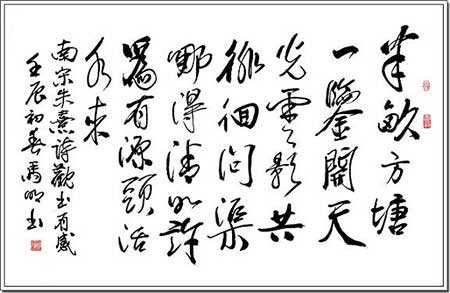 半畝方塘
一鑒開天
光雲影共
徘徊問渠
那得清如許
為有源頭活
水来
南宋朱熹詩觀书有感
壬辰初春书